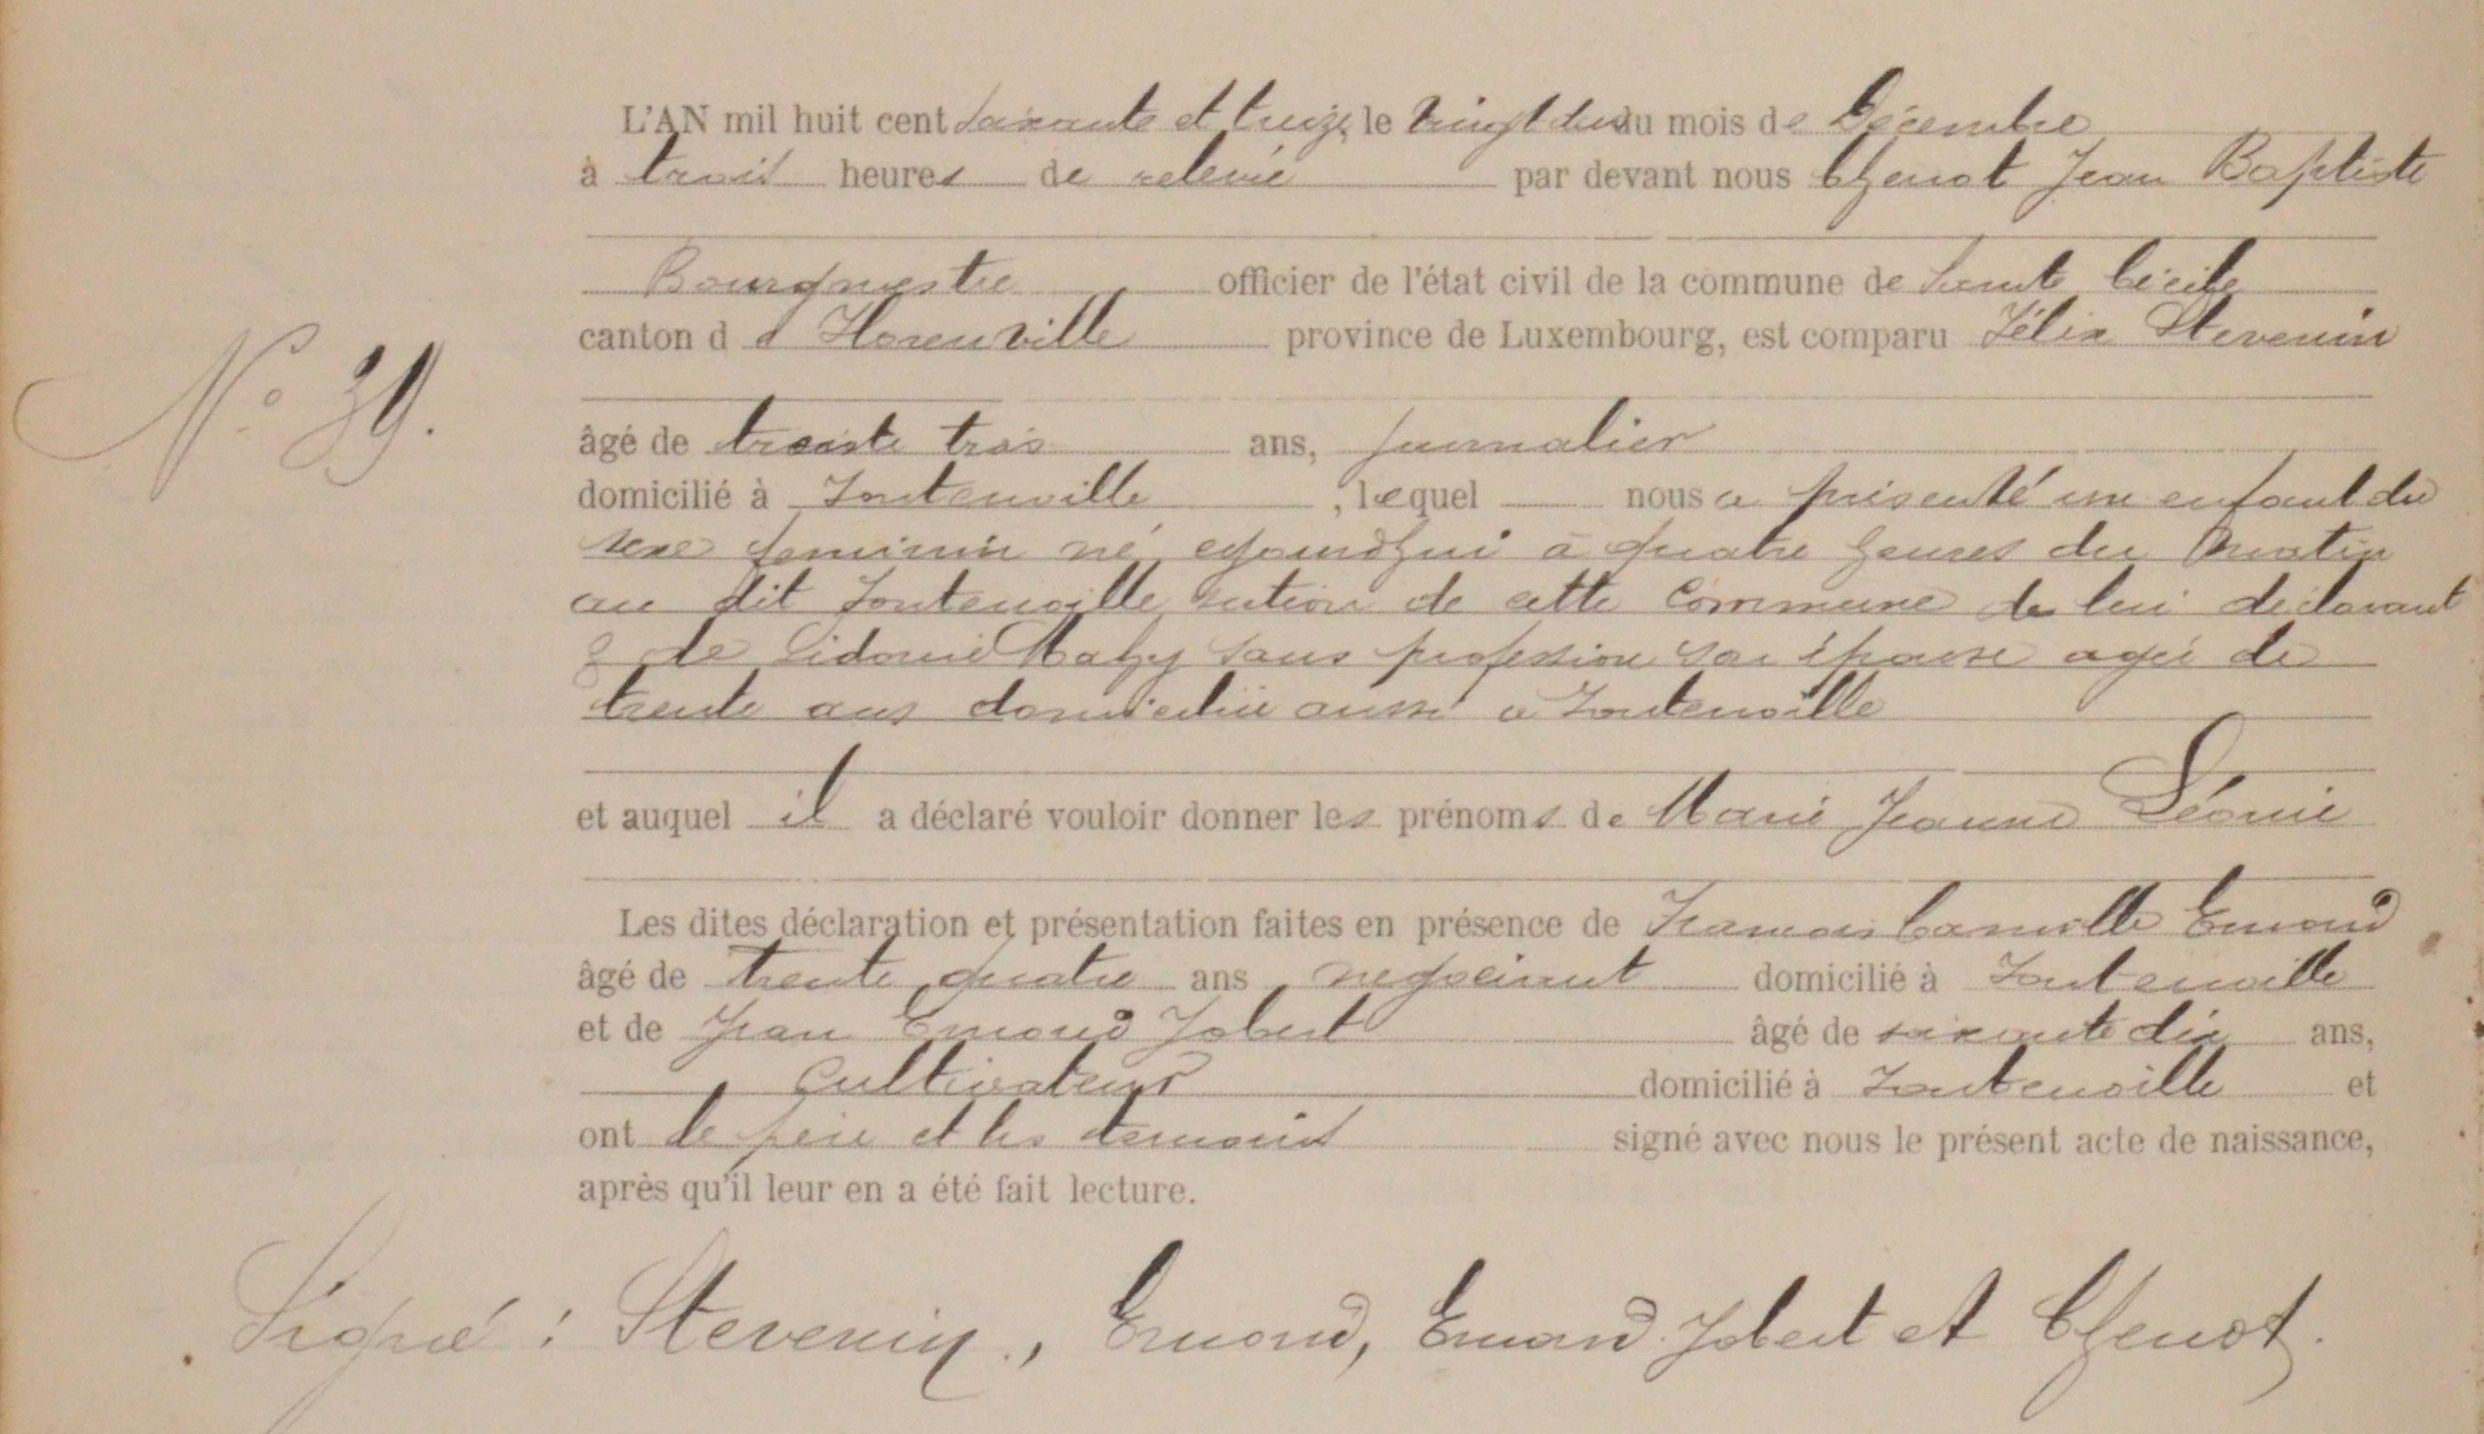 L'AN mil huit cent soixante et treize le vingt deux du mois de Décembre
à trois heures de relevée par devant nous Chenot Jean Baptiste
Bourgmestre officier de l'état civil de la commune de Sainte Cécile
canton d e Florenville province de Luxembourg, est comparu Félix Stevenin
N° 39.
âgé de trente trois ans, journalier
domicilié à Fontenoille, lequel nous a présenté un enfant du
sexe feminin né cejourd'hui à quatre heures du matin
au dit Fontenoille section de cette Commune de lui déclarant
& de Sidonie Mahy sans profession son épouse agée de
trente ans domiciliée aussi a Fontenoille
et auquel il a déclaré vouloir donner les prénoms de Marie Jeanne Léonie
Les dites déclaration et présentation faites en présence de Francois Camille Emond
âgé de trente quatre ans, negociant domicilié à Fontenoille
et de Jean Emond Jobert âgé de soixante dix ans,
Cultivateur domicilié à Fontenoille et
ont le père et les temoins signé avec nous le présent acte de naissance,
après qu'il leur en a été fait lecture.
Signé : Stevenin, Emond, Emond Jobert et Chenot.